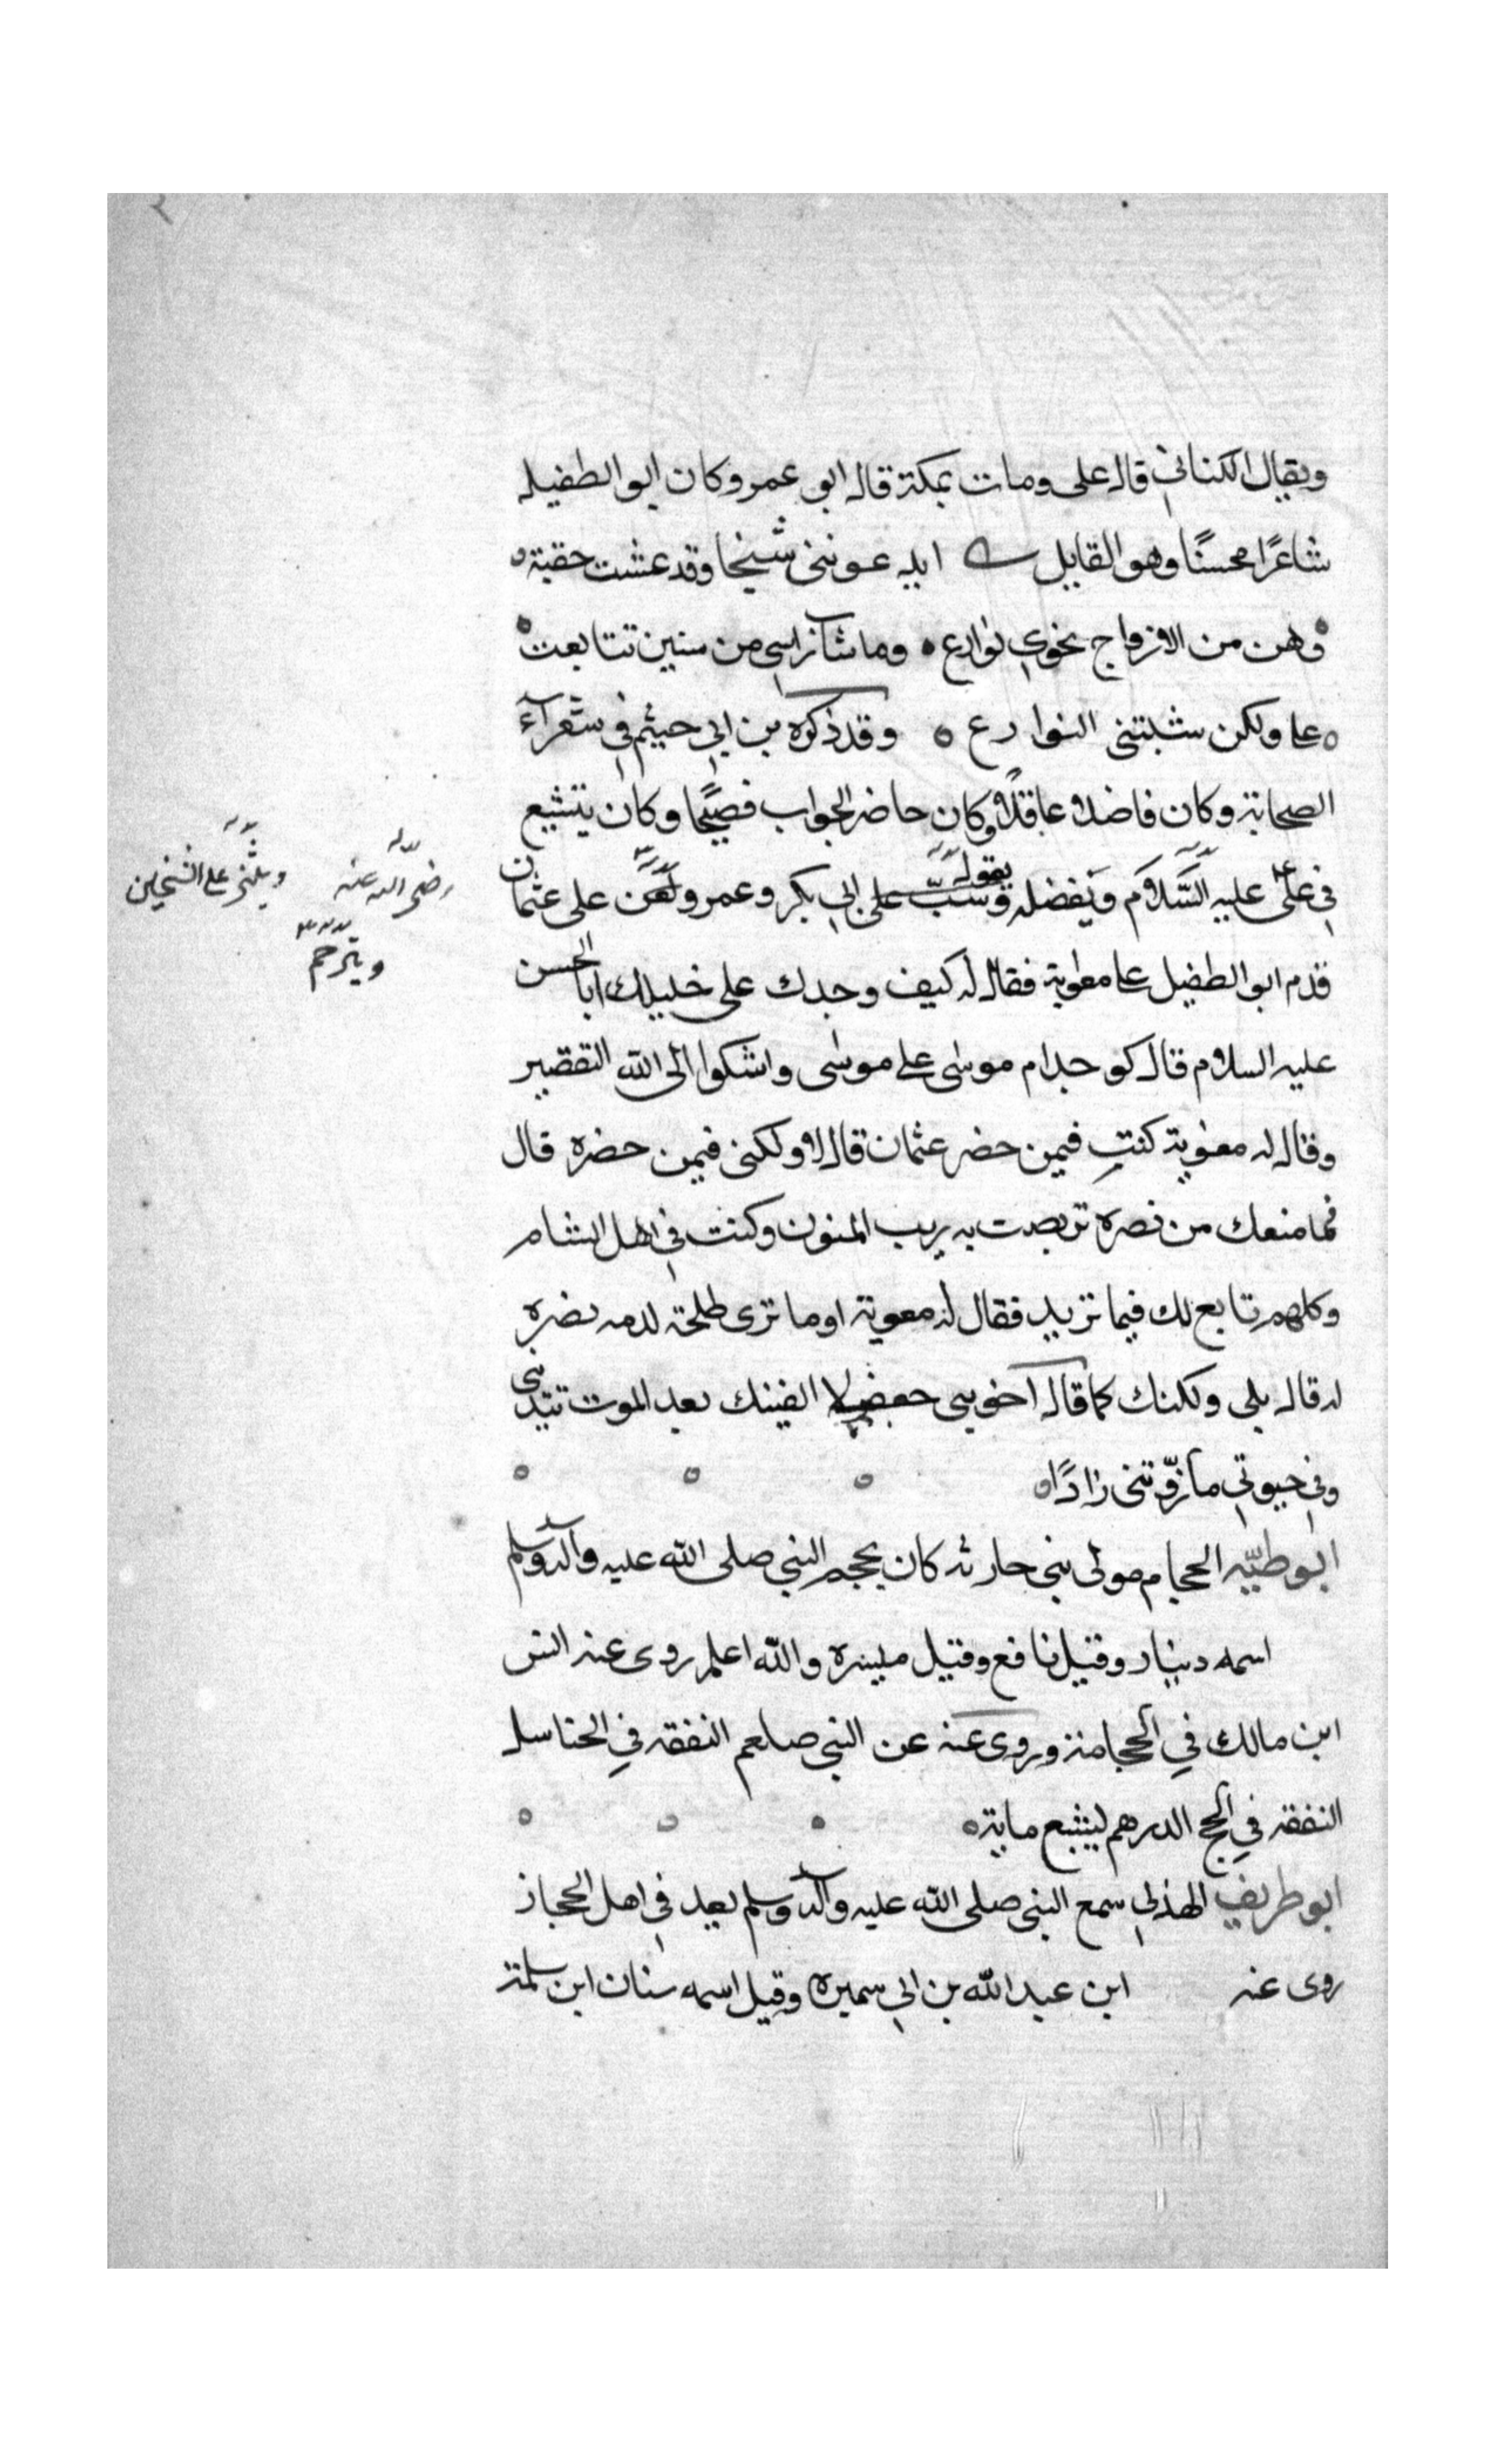 ويقال الكناني قال على ومات بمكة قال ابو عمر وكان ابو الطفيل
شاعرًا محسنًا وهو القايل ايدعونني شيخا وقد عشت حقبة
وهن من الازواج نحوي نوازع وما شاب راسى من سنين تتابعت
علي ولكن شيبتنى النوازع وقد ذكره بن ابي خيثم في شعرآء
الصحابة وكان فاضلا عاقلًا وكان حاضر الجواب فصيحًا وكان يتشيع
في علي عليه السّلام ويفضله وسبّ يقول على ابي بكر وعمر ولعن على عثمان
رضى الله عنه ويثنى على الشيخين
ويترحم
قدم ابو الطفيل على معاوية فقال له كيف وجدك على خليلك ابا الحسن
عليه السلام قال كوجد ام موسى على موسى واشكوا الى الله التقصير
وقال له معوية كنت فيمن حضر عثمان قال لا ولكنى فيمن حضره قال
فما منعك من نصره تربصت به ريب المنون وكنت في اهل الشام
وكلهم تابع لك فيما تريد فقال له معوية اوما ترى طلحة لدمه نصره
له قال بلى ولكنك كما قال اخو بى جعفى لا الفينك بعد الموت تندبنى
وفي حيوتي ما زوّتنى زادًا
ابو طيبه الحجام مولى بنى حارثه كان يحجم النبي صلى الله عليه وآله وسلم
اسمه دينار وقيل نافع وقيل ميسره والله اعلم روى عنه انس
ابن مالك في الحجامة وروى عنه عن النبى صلعم النفقه في الحنا سل
النفقه في الحج الدرهم ليشبع ماية
ابو طريف الهذلي سمع النبى صلى الله عليه وآله وسلم يعد في اهل الحجاز
روى عنه ابن عبد الله بن ابي سميره وقيل اسمه سنان ابن سلمة